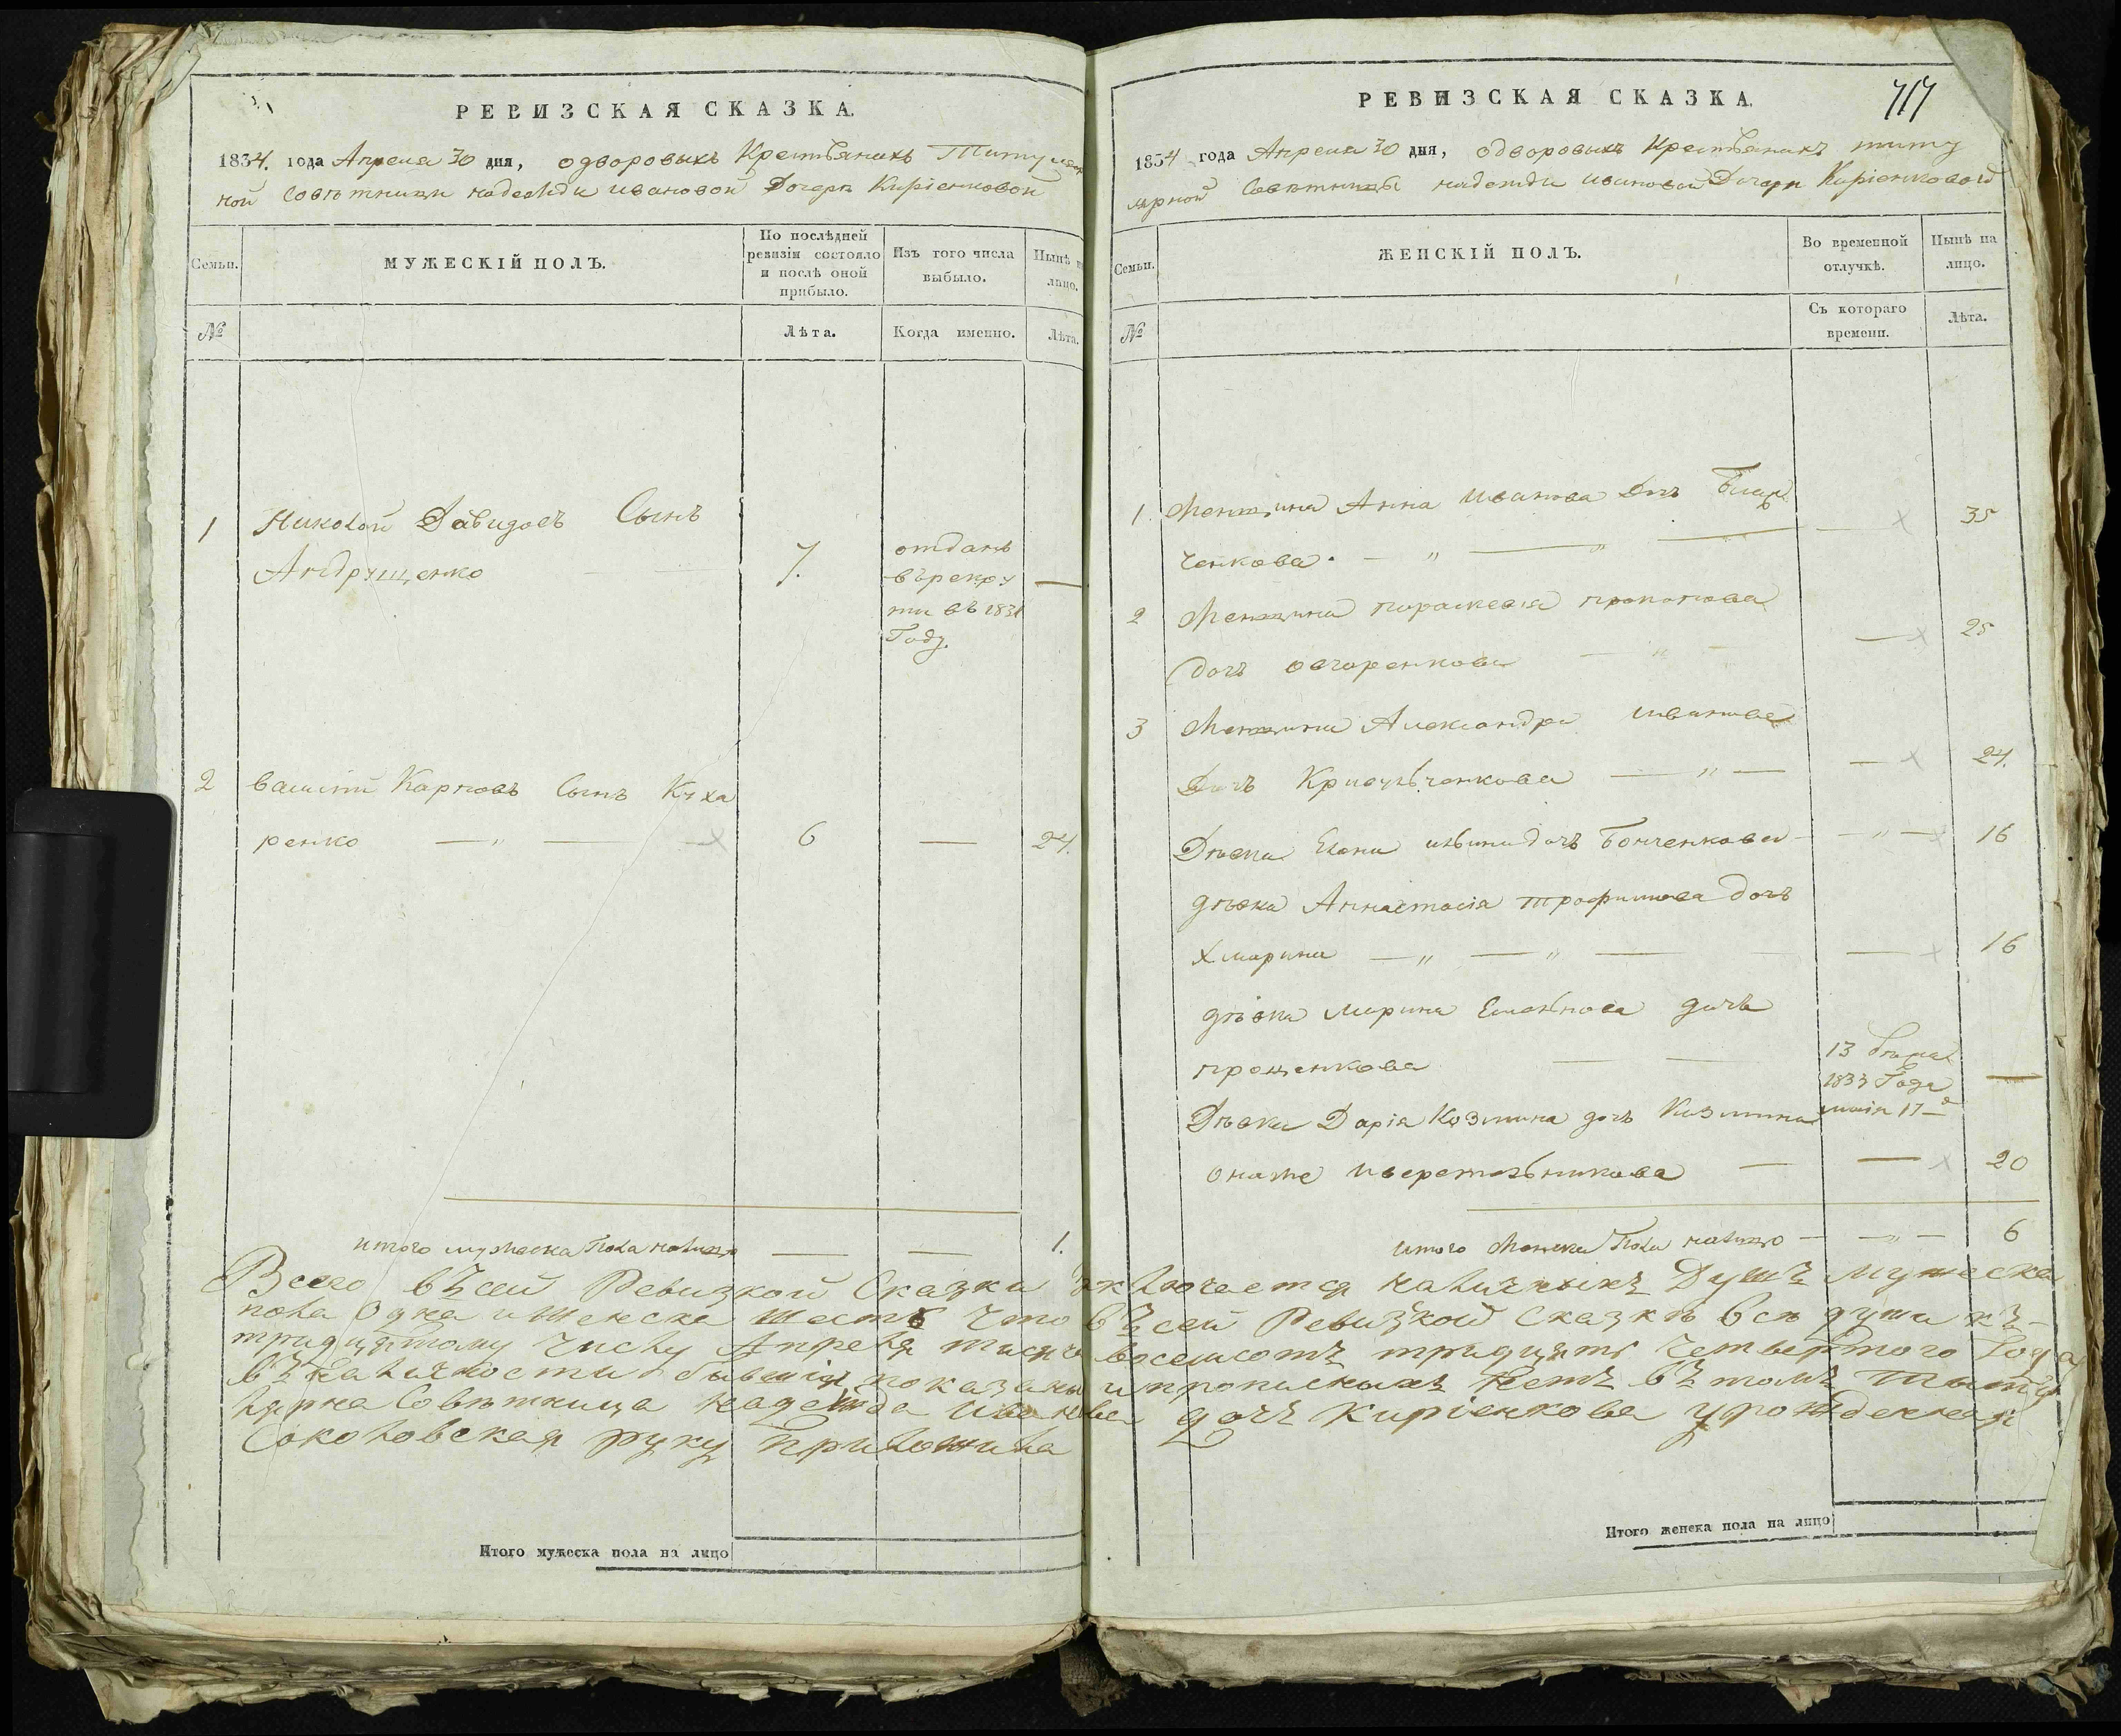 РЕВИЗСКАЯ СКАЗКА.
1834. года Апреля 30 дня, одворовыхъ Крестьянахъ Титуляр
ной Совѣтници надежди ивановой Дочери Кирiенковой
Семьи.
МУЖЕСКІЙ ПОЛЪ.
По послѣдней ревизіи состояло и послѣ оной прибыло.
Изъ того числа выбыло.
Нынѣ на лицо.
№
Лѣта.
Когда именно.
Лѣта.
1 Николай Давидовъ Сынъ
Андрущенко 7. отданъ
върекру
ти въ 1831
Году.
2 василій Карповъ Сынъ Куха
ренко — „ — 6 — 24.
итого мужеска Пола налицо — — 1.
РЕВИЗСКАЯ СКАЗКА.
717
1834 года Апреля 30 дня, одворовыхъ Крестьянахъ титу
лярной Совѣтницы надежди ивановой Дочери Кирiенковой
Семьи.
ЖЕНСКІЙ ПОЛЪ.
Во временной отлучкѣ.
Нынѣ на лицо.
№
Съ котораго времени.
Лѣта.
1 Женщина Анна иванова Дочь
ченкова. — „ — „ — 35
2 Женщина параскевія прокопова
дочь овчаренкова — „ — 25
3 Женщина Александра иванова
Дочь — „ — 24.
Дѣвка Елена дочь Бонченкова — „ — 16
дѣвка Аннастасія трофимова дочь
Хмарина — „ — „ — 16
дѣвка марина дочь
прощенкова — — 13
1833 Года —
Дѣвка Дарія Козмина дочь Козмина
онаже — — 20
итого Женска Пола налицо — „ — 6
Всего въсей Ревизкой Сказки заключается наличныхъ Душъ мужеска
пола Одна иженска шесть что въсей Ревизкой Сказкѣ всѣ души къ
тридцятому числу Апреля тисяча восемсотъ тридцять четвертого Года
въналичности бывшія показаны ипрописныхъ нетъ въ томъ титу
лярна Совѣтница надежда иванова дочь Кирiенкова урожденная
Соколовская руку приложила
Итого мужеска пола на лицо
Итого женска пола на лицо